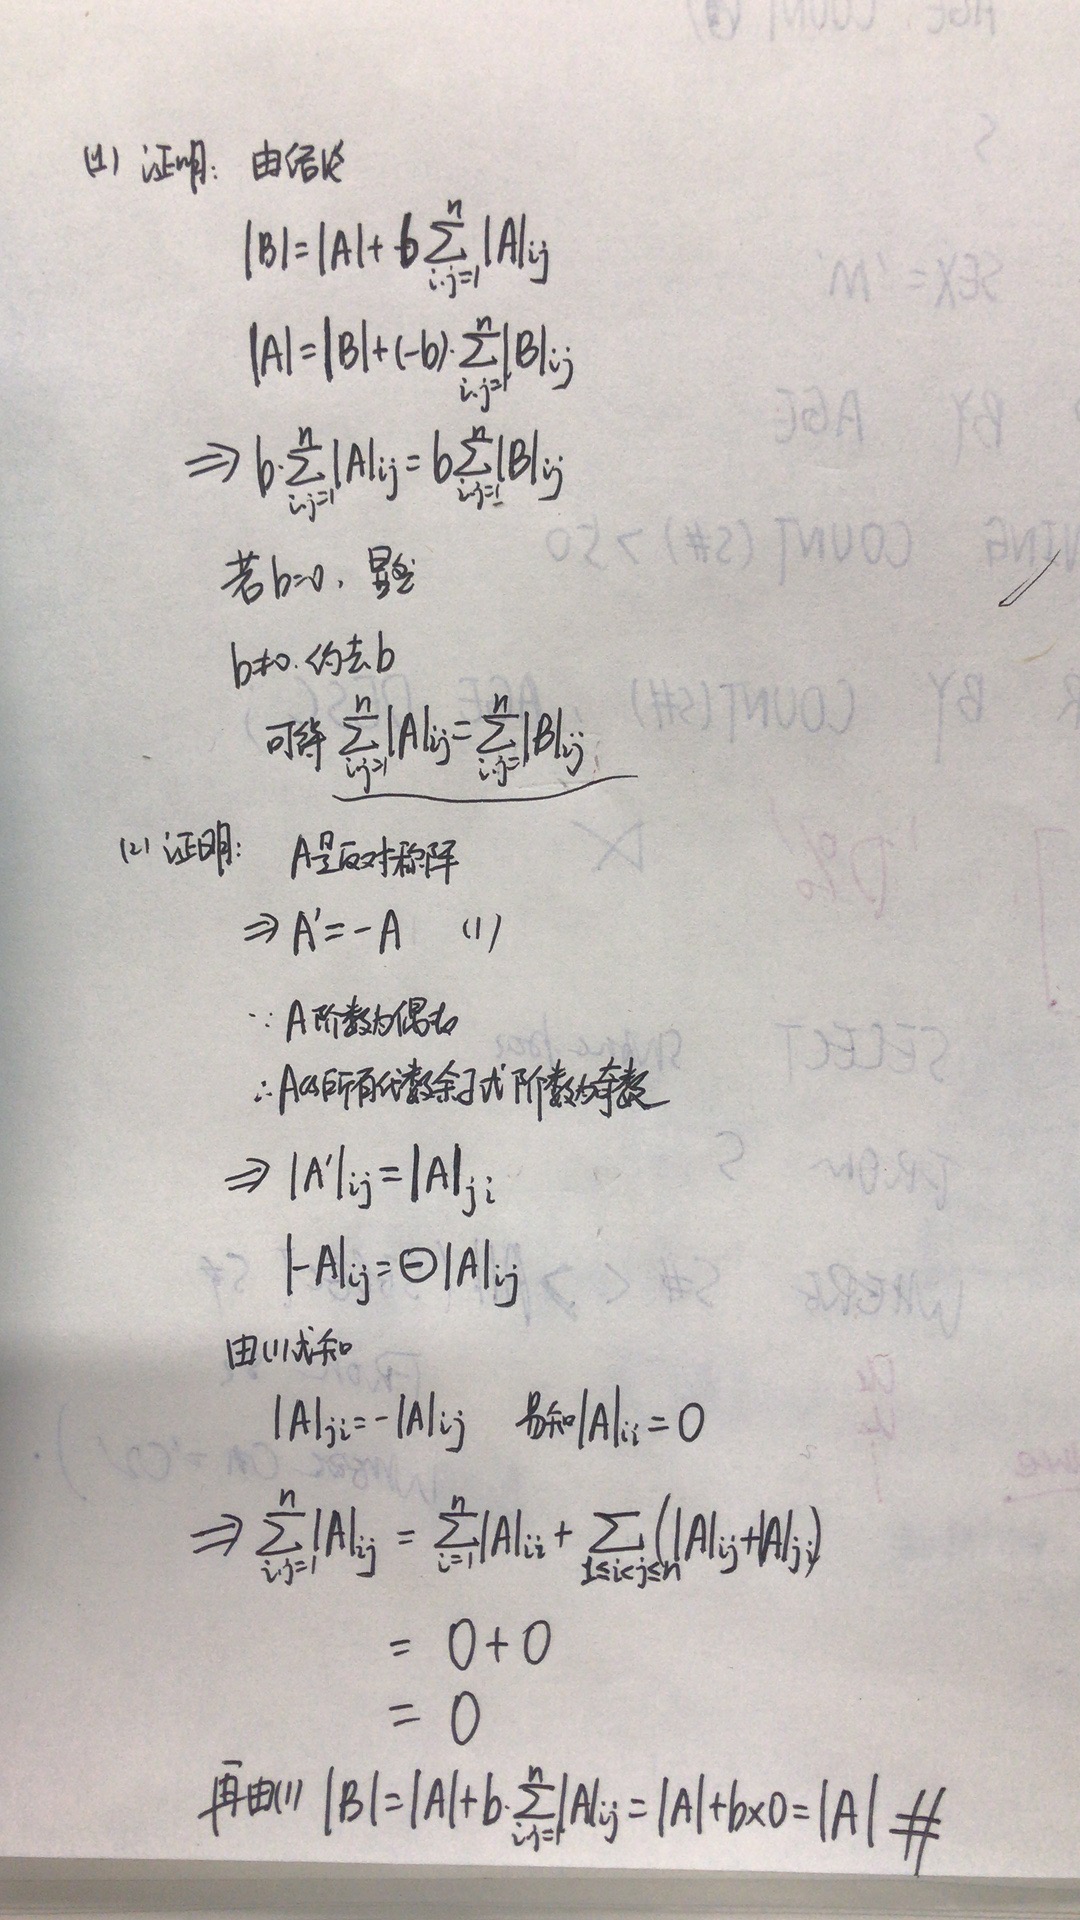 (1) 证明: 由结论
|B|=|A|+b∑_{i,j=1}^{n}|A|_{ij}
|A|=|B|+(-b)·∑_{i,j=1}^{n}|B|_{ij}
⇒ b·∑_{i,j=1}^{n}|A|_{ij}=b∑_{i,j=1}^{n}|B|_{ij}
若b=0, 显然
b≠0. 约去b
可得 ∑_{i,j=1}^{n}|A|_{ij}=∑_{i,j=1}^{n}|B|_{ij}
(2) 证明: A是反对称阵
⇒ A'=-A (1)
∵ A阶数为偶数
∴ A的所有代数余子式阶数为奇数
⇒ |A'|_{ij}=|A|_{ji}
|-A|_{ij}=⊖|A|_{ij}
由(1)式知
|A|_{ji}=-|A|_{ij} 易知|A|_{ii}=0
⇒ ∑_{i,j=1}^{n}|A|_{ij} = ∑_{i=1}^{n}|A|_{ii}+∑_{1≤i<j≤n}(|A|_{ij}+|A|_{ji})
= 0+0
= 0
再由(1) |B|=|A|+b·∑_{i,j=1}^{n}|A|_{ij}=|A|+b×0=|A| #